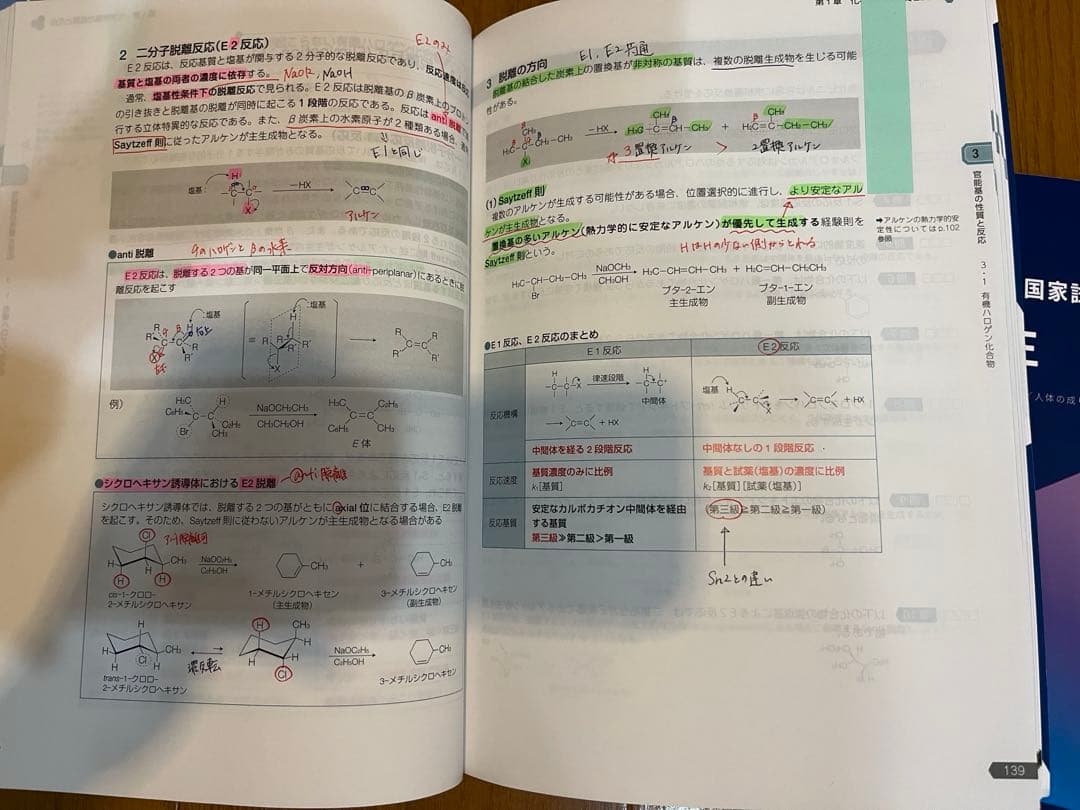 2 二分子脱離反応(E2反応)
E2のみ
E2反応は、反応基質と塩基が関与する2分子的な脱離反応であり、反応速度は
基質と塩基の両者の濃度に依存する。 NaOR, NaOH
通常、塩基性条件下の脱離反応で見られる。E2反応は脱離基のβ炭素上の
の引き抜きと脱離基の脱離が同時に起こる1段階の反応である。反応は anti 脱離
行する立体特異的な反応である。また、β炭素上の水素原子が2種類ある場合、
Saytzeff則に従ったアルケンが主生成物となる。
E1と同じ
塩基
H
-C-C-
X
-HX
>C=C<
アルケン
●anti 脱離
αのハロゲンとβの水素
E2反応は、脱離する2つの基が同一平面上で反対方向(anti-periplanar)にあるときに
離反応を起こす
塩基
塩基
例)
H₃C
C₆H₅
Br
H
C₂H₅
CH₃
NaOCH₂CH₃
CH₃CH₂OH
H₃C
C₂H₅
C₆H₅
CH₃
E体
●シクロヘキサン誘導体における E2 脱離
anti脱離
シクロヘキサン誘導体では、脱離する2つの基がともに axial 位に結合する場合、E2脱離
を起こす。そのため、Saytzeff 則に従わないアルケンが主生成物となる場合がある
Cl
CH₃
H
H
H
NaOC₂H₅
C₂H₅OH
CH₃
+
CH₃
cis-1-クロロ-
2-メチルシクロヘキサン
1-メチルシクロヘキセン
(主生成物)
3-メチルシクロヘキセン
(副生成物)
H
CH₃
Cl
H
H
環反転
H
CH₃
H
H
Cl
NaOC₂H₅
C₂H₅OH
CH₃
trans-1-クロロ-
2-メチルシクロヘキサン
3-メチルシクロヘキセン
第1章
3 脱離の方向
E1, E2共通
脱離基の結合した炭素上の置換基が非対称の基質は、複数の脱離生成物を生じる可能
性がある。
-HX
H₃C-C=CH-CH₃
+
H₂C=C-CH₂-CH₃
3置換アルケン > 2置換アルケン
(1) Saytzeff 則
複数のアルケンが生成する可能性がある場合、位置選択的に進行し、より安定なアル
ケンが主生成物となる。
置換基の多いアルケン(熱力学的に安定なアルケン)が優先して生成する経験則を
Saytzeff 則という。
HはHの少ない側からとれる
→アルケンの熱力学的安
定性についてはp.102
参照
H₃C-CH-CH₂-CH₃
Br
NaOCH₃
CH₃OH
H₃C-CH=CH-CH₃ + H₂C=CH-CH₂CH₃
ブタ-2-エン
主生成物
ブタ-1-エン
副生成物
●E1反応、E2反応のまとめ
E1反応
E2反応
反応機構
律速段階
中間体
+ HX
塩基
+ HX
中間体を経る2段階反応
中間体なしの1段階反応
反応速度
基質濃度のみに比例
k₁[基質]
基質と試薬(塩基)の濃度に比例
k₂[基質][試薬(塩基)]
反応基質
安定なカルボカチオン中間体を経由
する基質
第三級≫第二級>第一級
(第三級≧第二級≧第一級)
Sn2との違い
3
官能基の性質と反応
3・1 有機ハロゲン化合物
139
国家試